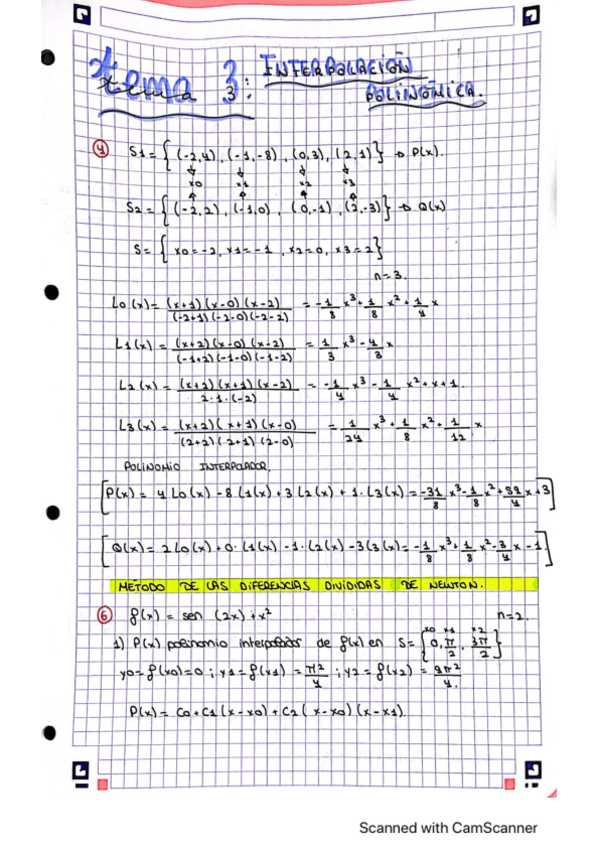 tema 3: INTERPOLACIÓN
POLINÓMICA.
④ S1 = { (-2,4), (-1,-8), (0,3), (2,1) } → P(x).
x0 x1 x2 x3
S2 = { (-2,2), (-1,0), (0,-1), (2,-3) } → Q(x)
S = { x0=-2, x1=-1, x2=0, x3=2 }
n=3.
L0(x) = (x+1)(x-0)(x-2) / (-2+1)(-2-0)(-2-2) = -1/8 x³ + 1/8 x² + 1/4 x
L1(x) = (x+2)(x-0)(x-2) / (-1+2)(-1-0)(-1-2) = 1/3 x³ - 4/3 x
L2(x) = (x+2)(x+1)(x-2) / 2·1·(-2) = -1/4 x³ - 1/4 x² + x + 1.
L3(x) = (x+2)(x+1)(x-0) / (2+2)(2+1)(2-0) = 1/24 x³ + 1/8 x² + 1/12 x
POLINOMIO INTERPOLADOR.
[P(x) = 4 L0(x) - 8 L1(x) + 3 L2(x) + 1·L3(x) = -31/8 x³ - 1/8 x² + 59/4 x + 3]
[Q(x) = 2 L0(x) + 0·L1(x) - 1·L2(x) - 3L3(x) = -1/8 x³ + 1/8 x² - 3/4 x - 1]
MÉTODO DE LAS DIFERENCIAS DIVIDIDAS DE NEWTON.
⑥ f(x) = sen (2x) + x² n=2.
x0 x1 x2
1) P(x) polinomio interpolador de f(x) en S = { 0, π/2, 3π/2 }
y0 = f(x0) = 0 ; y1 = f(x1) = π²/4 ; y2 = f(x2) = 9π²/4.
P(x) = C0 + C1 (x-x0) + C2 (x-x0)(x-x1).
Scanned with CamScanner